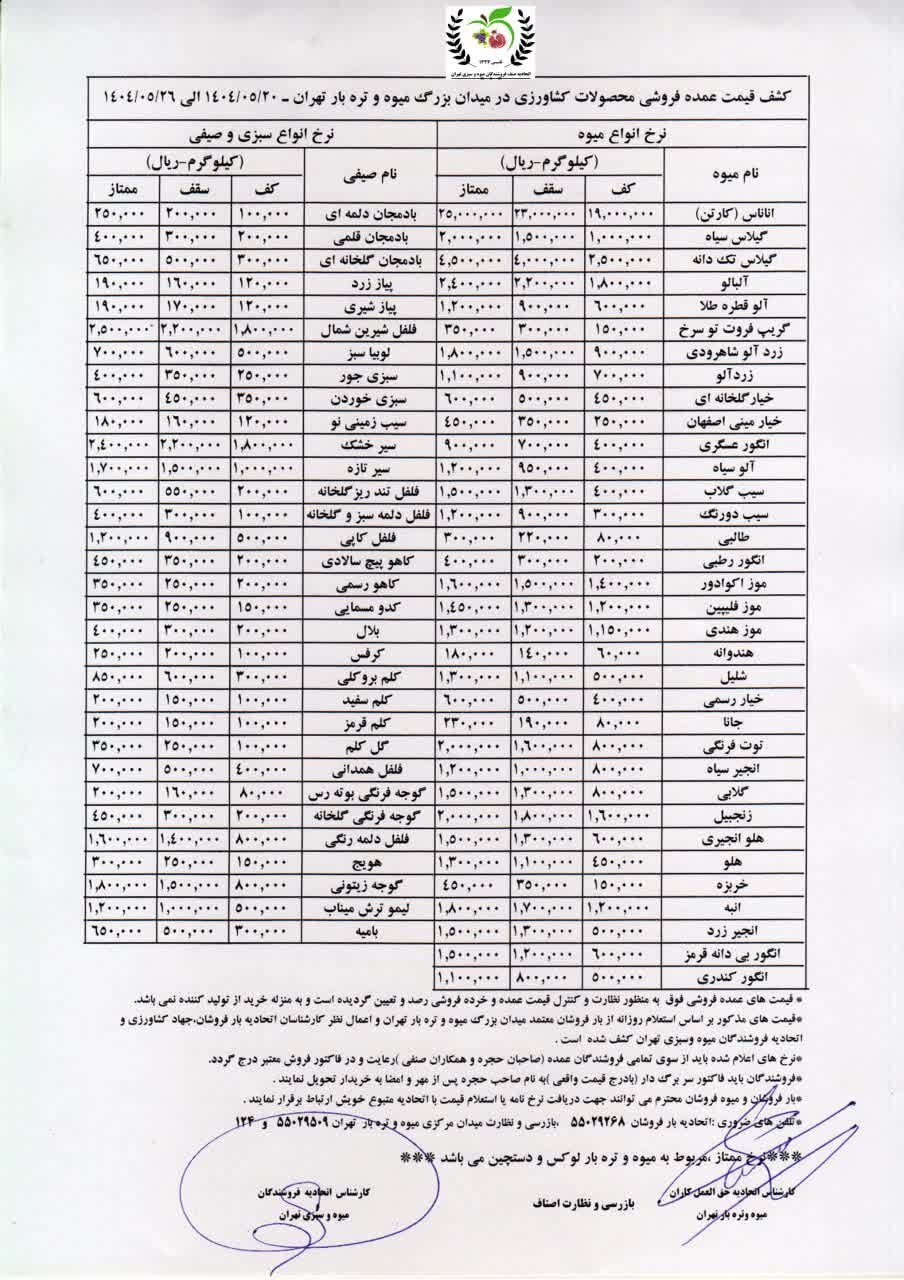 تاسیس ۱۳۲۴
اتحادیه صنف فروشندگان میوه و سبزی تهران
کشف قیمت عمده فروشی محصولات کشاورزی در میدان بزرگ میوه و تره بار تهران ــ ۱۴۰۴/۰۵/۲۰ الی ۱۴۰۴/۰۵/۲۶
نرخ انواع میوه نرخ انواع سبزی و صیفی
نام میوه (کیلوگرم-ریال) نام صیفی (کیلوگرم-ریال)
کف سقف ممتاز کف سقف ممتاز
اناناس (کارتن) ۱۹,۰۰۰,۰۰۰ ۲۳,۰۰۰,۰۰۰ ۲۵,۰۰۰,۰۰۰ بادمجان دلمه ای ۱۰۰,۰۰۰ ۲۰۰,۰۰۰ ۲۵۰,۰۰۰
گیلاس سیاه ۱,۰۰۰,۰۰۰ ۱,۵۰۰,۰۰۰ ۲,۰۰۰,۰۰۰ بادمجان قلمی ۲۰۰,۰۰۰ ۳۰۰,۰۰۰ ۴۰۰,۰۰۰
گیلاس تک دانه ۲,۵۰۰,۰۰۰ ۴,۰۰۰,۰۰۰ ۴,۵۰۰,۰۰۰ بادمجان گلخانه ای ۳۰۰,۰۰۰ ۵۰۰,۰۰۰ ۶۵۰,۰۰۰
آلبالو ۱,۸۰۰,۰۰۰ ۲,۲۰۰,۰۰۰ ۲,۴۰۰,۰۰۰ پیاز زرد ۱۲۰,۰۰۰ ۱۶۰,۰۰۰ ۱۹۰,۰۰۰
آلو قطره طلا ۶۰۰,۰۰۰ ۹۰۰,۰۰۰ ۱,۲۰۰,۰۰۰ پیاز شیری ۱۲۰,۰۰۰ ۱۷۰,۰۰۰ ۱۹۰,۰۰۰
گریپ فروت تو سرخ ۱۵۰,۰۰۰ ۳۰۰,۰۰۰ ۳۵۰,۰۰۰ فلفل شیرین شمال ۱,۸۰۰,۰۰۰ ۲,۲۰۰,۰۰۰ ۲,۵۰۰,۰۰۰
زرد آلو شاهرودی ۹۰۰,۰۰۰ ۱,۵۰۰,۰۰۰ ۱,۸۰۰,۰۰۰ لوبیا سبز ۵۰۰,۰۰۰ ۶۰۰,۰۰۰ ۷۰۰,۰۰۰
زردآلو ۷۰۰,۰۰۰ ۹۰۰,۰۰۰ ۱,۱۰۰,۰۰۰ سبزی جور ۲۵۰,۰۰۰ ۳۵۰,۰۰۰ ۴۰۰,۰۰۰
خیارگلخانه ای ۴۵۰,۰۰۰ ۵۰۰,۰۰۰ ۶۰۰,۰۰۰ سبزی خوردن ۳۵۰,۰۰۰ ۴۵۰,۰۰۰ ۶۰۰,۰۰۰
خیار مینی اصفهان ۲۵۰,۰۰۰ ۳۵۰,۰۰۰ ۴۵۰,۰۰۰ سیب زمینی نو ۱۲۰,۰۰۰ ۱۶۰,۰۰۰ ۱۸۰,۰۰۰
انگور عسگری ۴۰۰,۰۰۰ ۷۰۰,۰۰۰ ۹۰۰,۰۰۰ سیر خشک ۱,۸۰۰,۰۰۰ ۲,۲۰۰,۰۰۰ ۲,۴۰۰,۰۰۰
آلو سیاه ۴۰۰,۰۰۰ ۹۵۰,۰۰۰ ۱,۲۰۰,۰۰۰ سیر تازه ۱,۰۰۰,۰۰۰ ۱,۵۰۰,۰۰۰ ۱,۷۰۰,۰۰۰
سیب گلاب ۴۰۰,۰۰۰ ۱,۳۰۰,۰۰۰ ۱,۵۰۰,۰۰۰ فلفل تند ریزگلخانه ۲۰۰,۰۰۰ ۵۵۰,۰۰۰ ۶۰۰,۰۰۰
سیب دورنگ ۳۰۰,۰۰۰ ۹۰۰,۰۰۰ ۱,۲۰۰,۰۰۰ فلفل دلمه سبز و گلخانه ۱۰۰,۰۰۰ ۳۰۰,۰۰۰ ۴۰۰,۰۰۰
طالبی ۸۰,۰۰۰ ۲۲۰,۰۰۰ ۳۰۰,۰۰۰ فلفل کاپی ۵۰۰,۰۰۰ ۹۰۰,۰۰۰ ۱,۲۰۰,۰۰۰
انگور رطبی ۲۰۰,۰۰۰ ۳۰۰,۰۰۰ ۴۰۰,۰۰۰ کاهو پیچ سالادی ۲۰۰,۰۰۰ ۳۵۰,۰۰۰ ۴۵۰,۰۰۰
موز اکوادور ۱,۴۰۰,۰۰۰ ۱,۵۰۰,۰۰۰ ۱,۶۰۰,۰۰۰ کاهو رسمی ۲۰۰,۰۰۰ ۲۵۰,۰۰۰ ۳۵۰,۰۰۰
موز فلیپین ۱,۲۰۰,۰۰۰ ۱,۳۰۰,۰۰۰ ۱,۴۵۰,۰۰۰ کدو مسمایی ۱۵۰,۰۰۰ ۲۵۰,۰۰۰ ۳۵۰,۰۰۰
موز هندی ۱,۱۵۰,۰۰۰ ۱,۲۰۰,۰۰۰ ۱,۳۰۰,۰۰۰ بلال ۲۰۰,۰۰۰ ۳۰۰,۰۰۰ ۴۰۰,۰۰۰
هندوانه ۶۰,۰۰۰ ۱۴۰,۰۰۰ ۱۸۰,۰۰۰ کرفس ۱۰۰,۰۰۰ ۲۰۰,۰۰۰ ۲۵۰,۰۰۰
شلیل ۵۰۰,۰۰۰ ۱,۱۰۰,۰۰۰ ۱,۳۰۰,۰۰۰ کلم بروکلی ۳۰۰,۰۰۰ ۶۰۰,۰۰۰ ۸۵۰,۰۰۰
خیار رسمی ۴۰۰,۰۰۰ ۵۰۰,۰۰۰ ۶۰۰,۰۰۰ کلم سفید ۱۰۰,۰۰۰ ۱۵۰,۰۰۰ ۲۰۰,۰۰۰
جانا ۸۰,۰۰۰ ۱۹۰,۰۰۰ ۲۳۰,۰۰۰ کلم قرمز ۱۰۰,۰۰۰ ۱۵۰,۰۰۰ ۲۰۰,۰۰۰
توت فرنگی ۸۰۰,۰۰۰ ۱,۶۰۰,۰۰۰ ۲,۰۰۰,۰۰۰ گل کلم ۱۰۰,۰۰۰ ۲۵۰,۰۰۰ ۳۵۰,۰۰۰
انجیر سیاه ۸۰۰,۰۰۰ ۱,۰۰۰,۰۰۰ ۱,۲۰۰,۰۰۰ فلفل همدانی ۴۰۰,۰۰۰ ۵۰۰,۰۰۰ ۷۰۰,۰۰۰
گلابی ۸۰۰,۰۰۰ ۱,۳۰۰,۰۰۰ ۱,۵۰۰,۰۰۰ گوجه فرنگی بوته رس ۸۰,۰۰۰ ۱۶۰,۰۰۰ ۲۰۰,۰۰۰
زنجبیل ۱,۶۰۰,۰۰۰ ۱,۸۰۰,۰۰۰ ۲,۰۰۰,۰۰۰ گوجه فرنگی گلخانه ۲۰۰,۰۰۰ ۳۰۰,۰۰۰ ۴۵۰,۰۰۰
هلو انجیری ۶۰۰,۰۰۰ ۱,۳۰۰,۰۰۰ ۱,۵۰۰,۰۰۰ فلفل دلمه رنگی ۸۰۰,۰۰۰ ۱,۴۰۰,۰۰۰ ۱,۶۰۰,۰۰۰
هلو ۴۵۰,۰۰۰ ۱,۱۰۰,۰۰۰ ۱,۳۰۰,۰۰۰ هویج ۱۵۰,۰۰۰ ۲۵۰,۰۰۰ ۳۰۰,۰۰۰
خربزه ۱۵۰,۰۰۰ ۳۵۰,۰۰۰ ۴۵۰,۰۰۰ گوجه زیتونی ۸۰۰,۰۰۰ ۱,۵۰۰,۰۰۰ ۱,۸۰۰,۰۰۰
انبه ۱,۲۰۰,۰۰۰ ۱,۷۰۰,۰۰۰ ۱,۸۰۰,۰۰۰ لیمو ترش میناب ۵۰۰,۰۰۰ ۱,۰۰۰,۰۰۰ ۱,۲۰۰,۰۰۰
انجیر زرد ۵۰۰,۰۰۰ ۱,۳۰۰,۰۰۰ ۱,۵۰۰,۰۰۰ بامیه ۳۰۰,۰۰۰ ۵۰۰,۰۰۰ ۶۵۰,۰۰۰
انگور بی دانه قرمز ۶۰۰,۰۰۰ ۱,۲۰۰,۰۰۰ ۱,۵۰۰,۰۰۰
انگور کندری ۵۰۰,۰۰۰ ۸۰۰,۰۰۰ ۱,۱۰۰,۰۰۰
* قیمت های عمده فروشی فوق به منظور نظارت و کنترل قیمت عمده و خرده فروشی رصد و تعیین گردیده است و به منزله خرید از تولید کننده نمی باشد.
*قیمت های مذکور بر اساس استعلام روزانه از بار فروشان معتمد میدان بزرگ میوه و تره بار تهران و اعمال نظر کارشناسان اتحادیه بار فروشان،جهاد کشاورزی و
اتحادیه فروشندگان میوه وسبزی تهران کشف شده است .
*نرخ های اعلام شده باید از سوی تمامی فروشندگان عمده (صاحبان حجره و همکاران صنفی )رعایت و در فاکتور فروش معتبر درج گردد.
*فروشندگان باید فاکتور سر برگ دار (بادرج قیمت واقعی )به نام صاحب حجره پس از مهر و امضا به خریدار تحویل نمایند .
*بار فروشان و میوه فروشان محترم می توانند جهت دریافت نرخ نامه یا استعلام قیمت با اتحادیه متبوع خویش ارتباط برقرار نمایند .
*تلفن های ضروری :اتحادیه بار فروشان ۵۵۰۲۹۲۶۸ ،بازرسی و نظارت میدان مرکزی میوه و تره بار تهران ۵۵۰۲۹۵۰۹ و ۱۲۴
***نرخ ممتاز ،مربوط به میوه و تره بار لوکس و دستچین می باشد ***
کارشناس اتحادیه حق العمل کاران بازرسی و نظارت اصناف کارشناس اتحادیه فروشندگان
میوه وتره بار تهران میوه و سبزی تهران